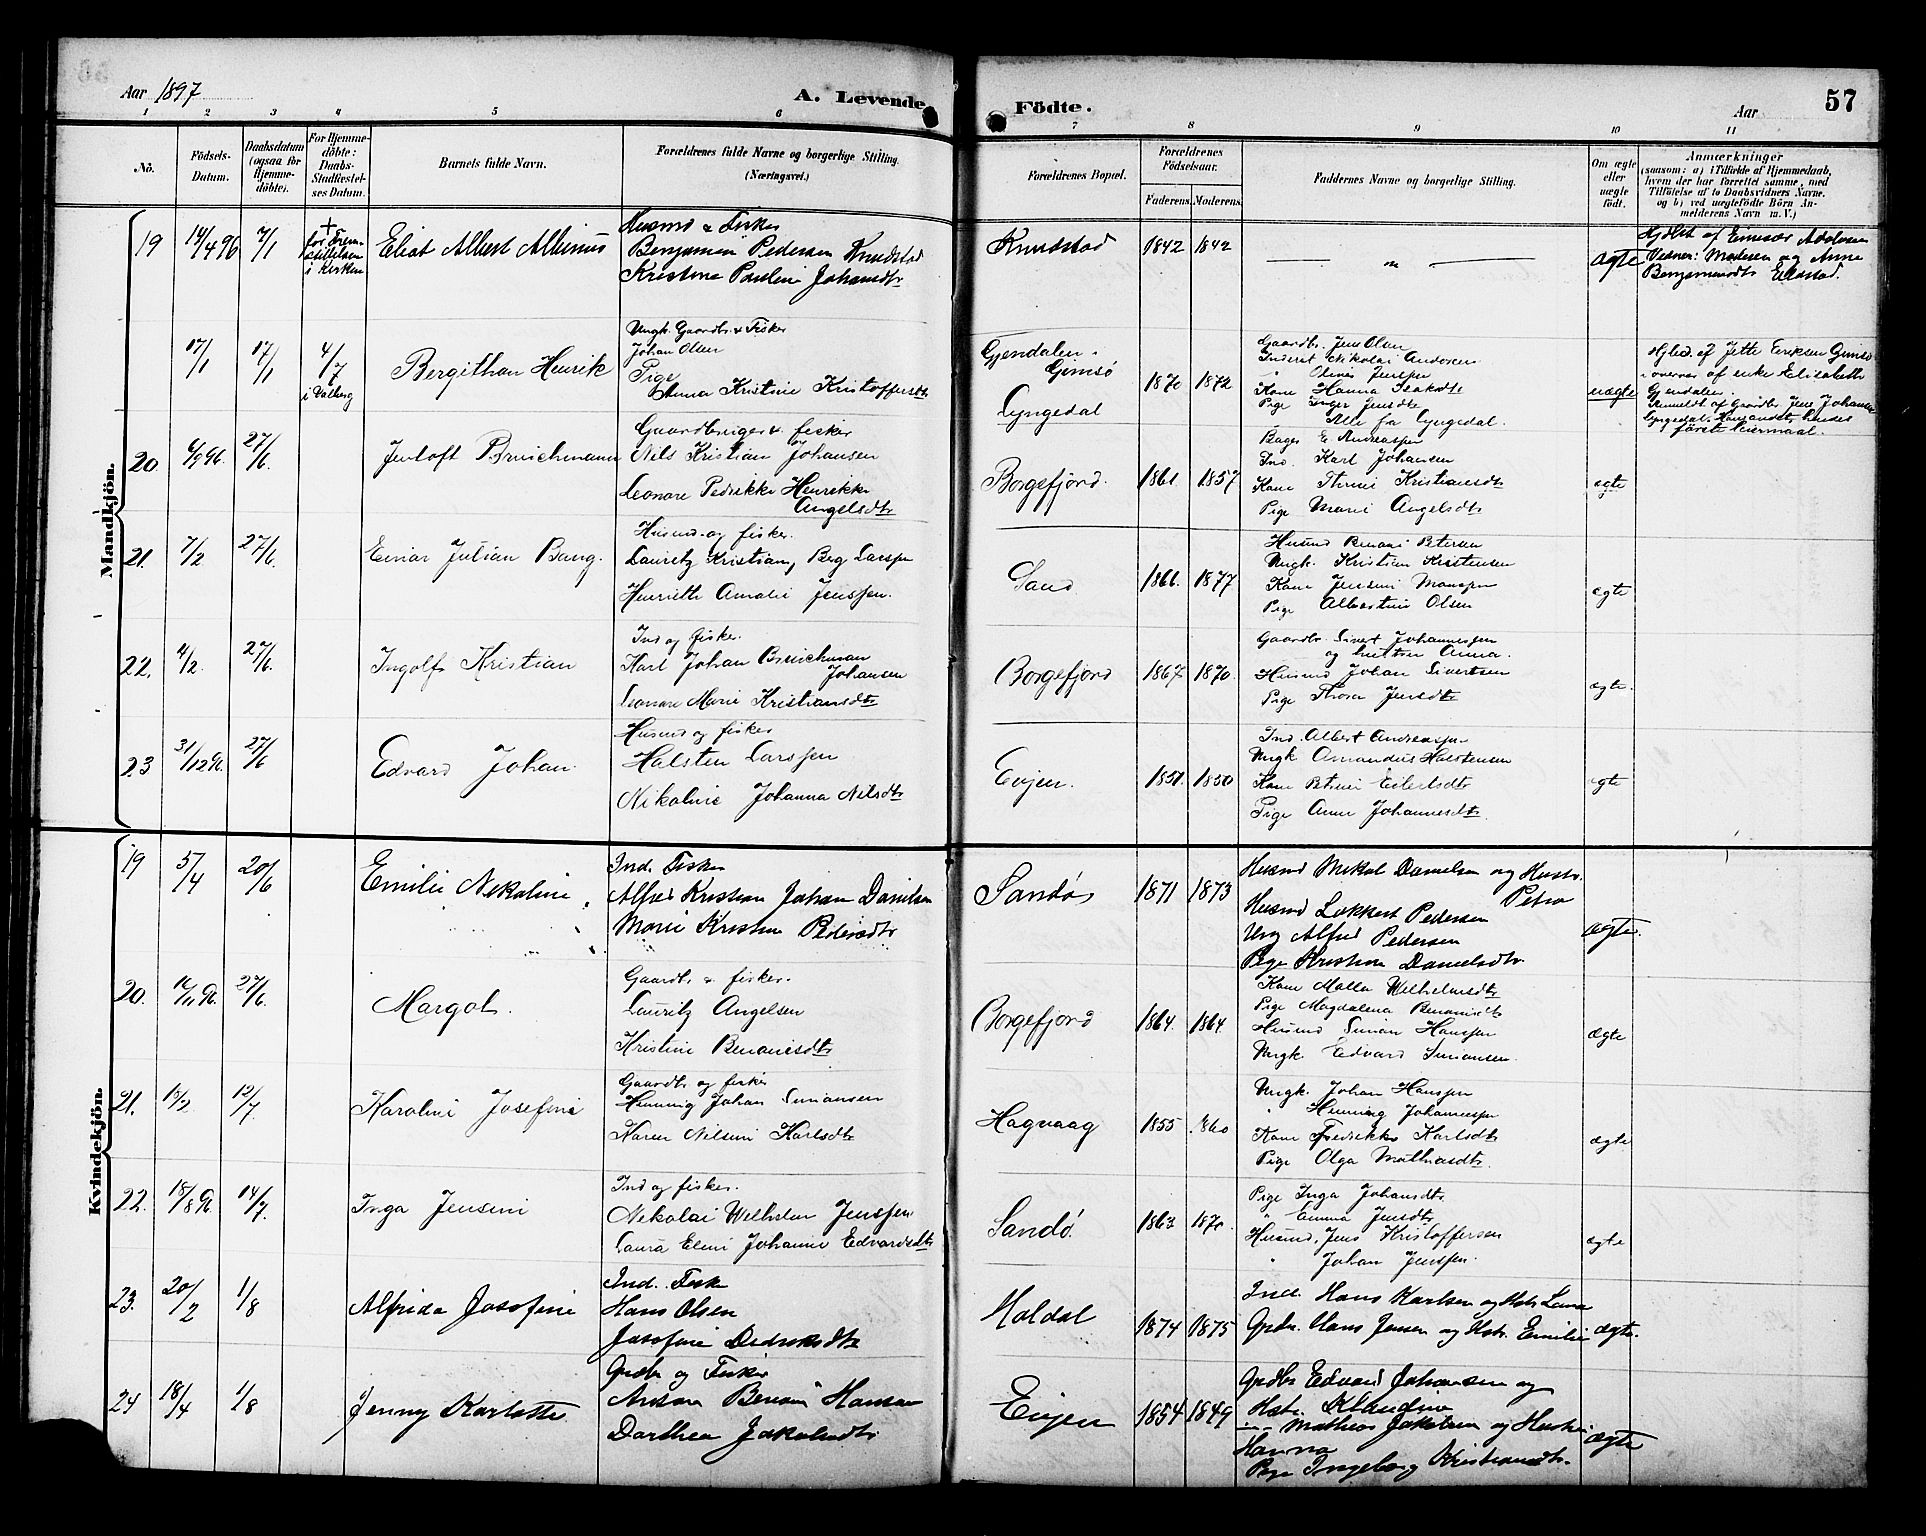 Aar 1897
A. Levende
Födte.
Aar
57
1 2 3 4 5 6 7 8 9 10 11
No.
Födsels-
Datum.
Daabsdatum
(ogsaa for
Hjemme-
döbte).
For Hjemme-
döbte:
Daabs-
Stadfæstel-
ses Datum.
Barnets fulde Navn.
Forældrenes fulde Navne og borgerlige Stilling.
(Næringsvei.)
Forældrenes Bopæl.
Forældrenes
Födselsaar.
Faderens.
Moderens.
Faddernes Navne og borgerlige Stilling.
Om ægte
eller
uægte
født.
Anmærkninger
(saasom: a) i Tilfælde af Hjemmedaab,
hvem der har forrettet samme, med
Tilföielse af to Daabsvidners Navne.
og b) ved uægtefödte Börn An-
melderens Navn m. V.)
Mandkjön.
19 14/4 96 7/1
+
for Frem-
stillelsen
i Kirken
Eliot Albert Albinus
Husmd & Fisker
Benjamin Pedersen Knudstad
Kristine Pauline Johansdtr
Knudstad 1842 1842
— " —
ægte
Hjdbt af Einar Adolfsen
Vidner: Madsen og Anne
Benjaminsdtr
17/1 17/1 4/7
i Valberg
Bergithon Henrik
Ungk. Gaardbr. & Fisker
Johan Olsen
Pige
Anna Kristine Kristoffersdtr
Gjendalen.
Gimsö
Lyngedal
1870 1872
Gaardbr. Jens Olsen
Inderst Nikolai Andersen
" Olines Jenssen
Kone Hanna Isaksdtr
Pige Inger Jensdtr
Alle fra Lyngedal.
uægte
Hjdbt. af Jette Eriksen Gimsö
i overvær af enke Elisabeth
Gjendalen.
Anmeldt af Gaardbr Jens Johansen
første leiermaal.
20. 6/9 96. 27/6.
Jentoft Bruichmann
Gaardbruger & fisker
Nils Kristian Johansen
Leonore Pedrikke Henrikke
Angelsdtr
Borgefjord. 1861. 1857
Bager E. Andreassen
Ind. Karl Johansen
Kone Thrine Kristiansdtr
Pige Marie Angelsdtr
ægte
21. 7/2 27/6
Einar Julian Bang.
Husmd. og fisker.
Lauritz Kristian Berg Larssen
Henriette Amalie Jenssen.
Sand 1866. 1877
Husmd Benoni Petersen
Ungk. Kristian Kristensen
Kone Jensine Monssen
Pige Albertine Olsen
ægte
22. 4/2. 27/6.
Ingolf Kristian
Ind og fisker.
Karl Johan Bruichman
Johansen
Leonore Marie Kristiansdtr
Borgefjord 1867 1870.
Gaardbr. Sivert Johannessen
og hustru Anna.
Husmd Johan Sivertsen
Pige Thora Jensdtr
ægte.
23 31/12 96. 27/6
Edvard Johan.
Husmd og fisker
Halsten Larssen
Nikoline Johanna Nilsdtr
Evjen. 1851. 1850
Ind. Albert Andreassen
Ungk Amandus Halstensen
Kone Petrine Eilertsdtr
Pige Anne Johannesdtr.
ægte
Kvindekjön.
19 5/4 20/6
Emilie Nekoline
Ind. Fisker
Alfred Kristian Johan Danielsen
Marie Kristine Pedersdtr
Sandö 1871 1873
Husmd Mikal Danielsen og Hustr.
Petra
Husmd Lekkert Pedersen
Ung Alfred Pedersen
Pige Kristine Danielsdtr.
ægte.
20. 16/11 96. 27/6.
Margot.
Gaardbr & fisker.
Lauritz Angelsen
Kristine Benonisdtr
Borgefjord 1864. 1864.
Kone Malla Wilhelmsdtr
Pige Magdalena Benonisdtr
Husmd Simon Hanssen
Ungk. Edvard Simonsen.
ægte
21. 13/2 12/7
Karoline Josefine
Gaardbr. og fisker
Henning Johan Simonsen
Karen Nilsine Karlsdtr
Hagvaag 1855 1860
Ungk. Johan Hanssen
" Henning Johannessen
Kone Fredrikke Karlsdtr
Pige Olga Mathiasdtr.
ægte
22. 18/8 96. 14/7.
Inga Jensine
Ind og fisker.
Nekolai Wilhelm Jenssen
Laura Eline Johanne Edvardsdtr
Sandö. 1863 1870.
Pige Inga Johansdtr.
" Emma Jensdtr
Husmd, Jens Kristoffersen
" Johan Jenssen.
ægte
23. 20/2 1/8
Alfrida Josefine
Ind. Fisker
Hans Olsen
Josefine Dedriksdtr
Holdal 1874 1875
Ind. Hans Karlsen og Hstr Lava
Grdbr. Hans Jensen og Hstr. Emilie
ægte.
24 18/4 1/8
Jenny Karlotte
Grdbr og Fisker
Anton Benoni Hansen
Dorthea Jakobsdtr
Evjen 1854 1849
Grdbr Edvard Johansen og
Hstr. Klaudine
— " — Mathias Jakobsen og Hustru
Hanna
Pige Ingeborg Kristiansdtr.
ægte